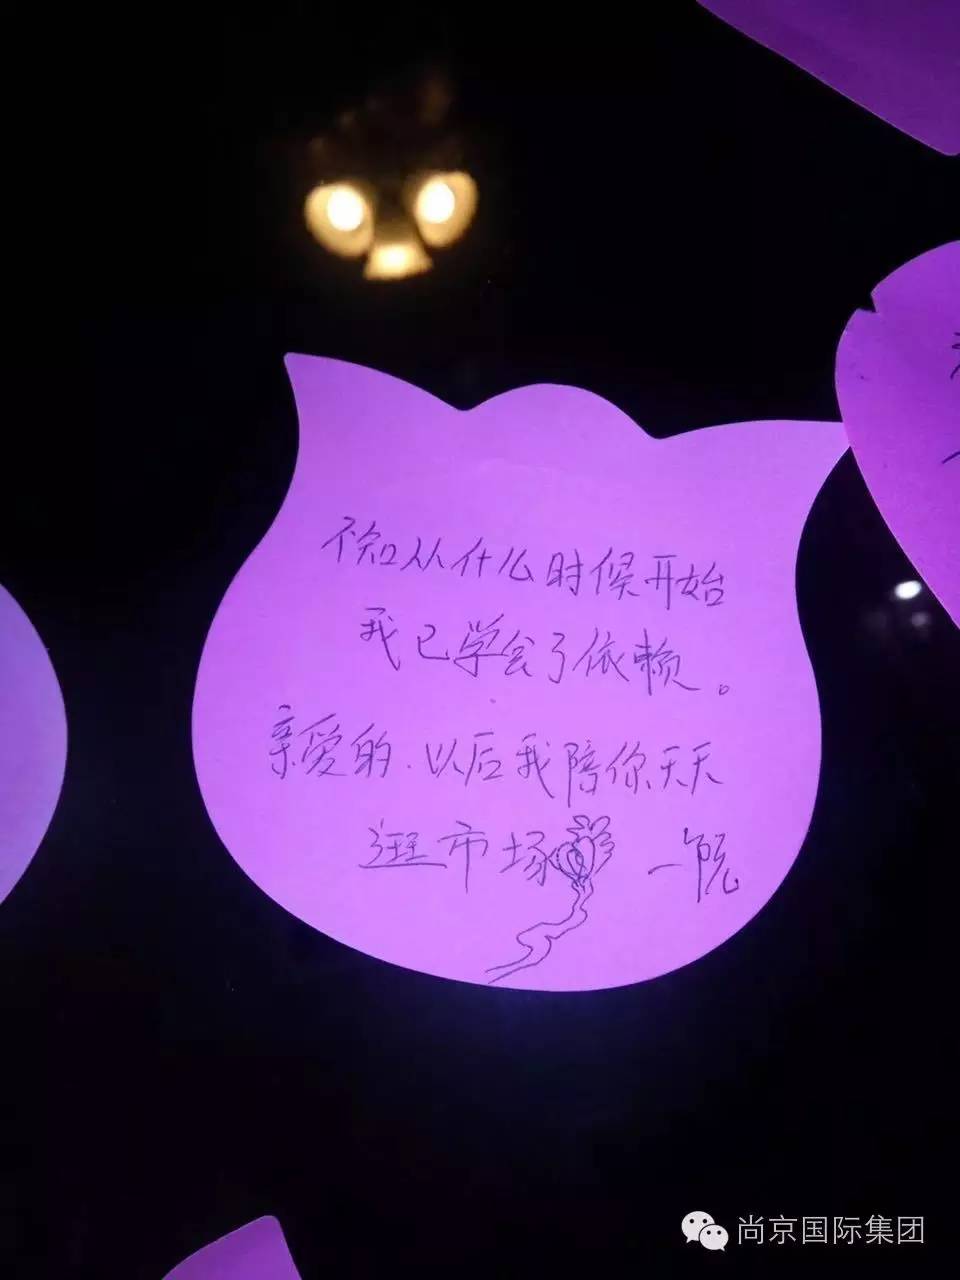 不知从什么时候开始
我已学会了依赖。
亲爱的、以后我陪你天天
逛市场
尚京国际集团